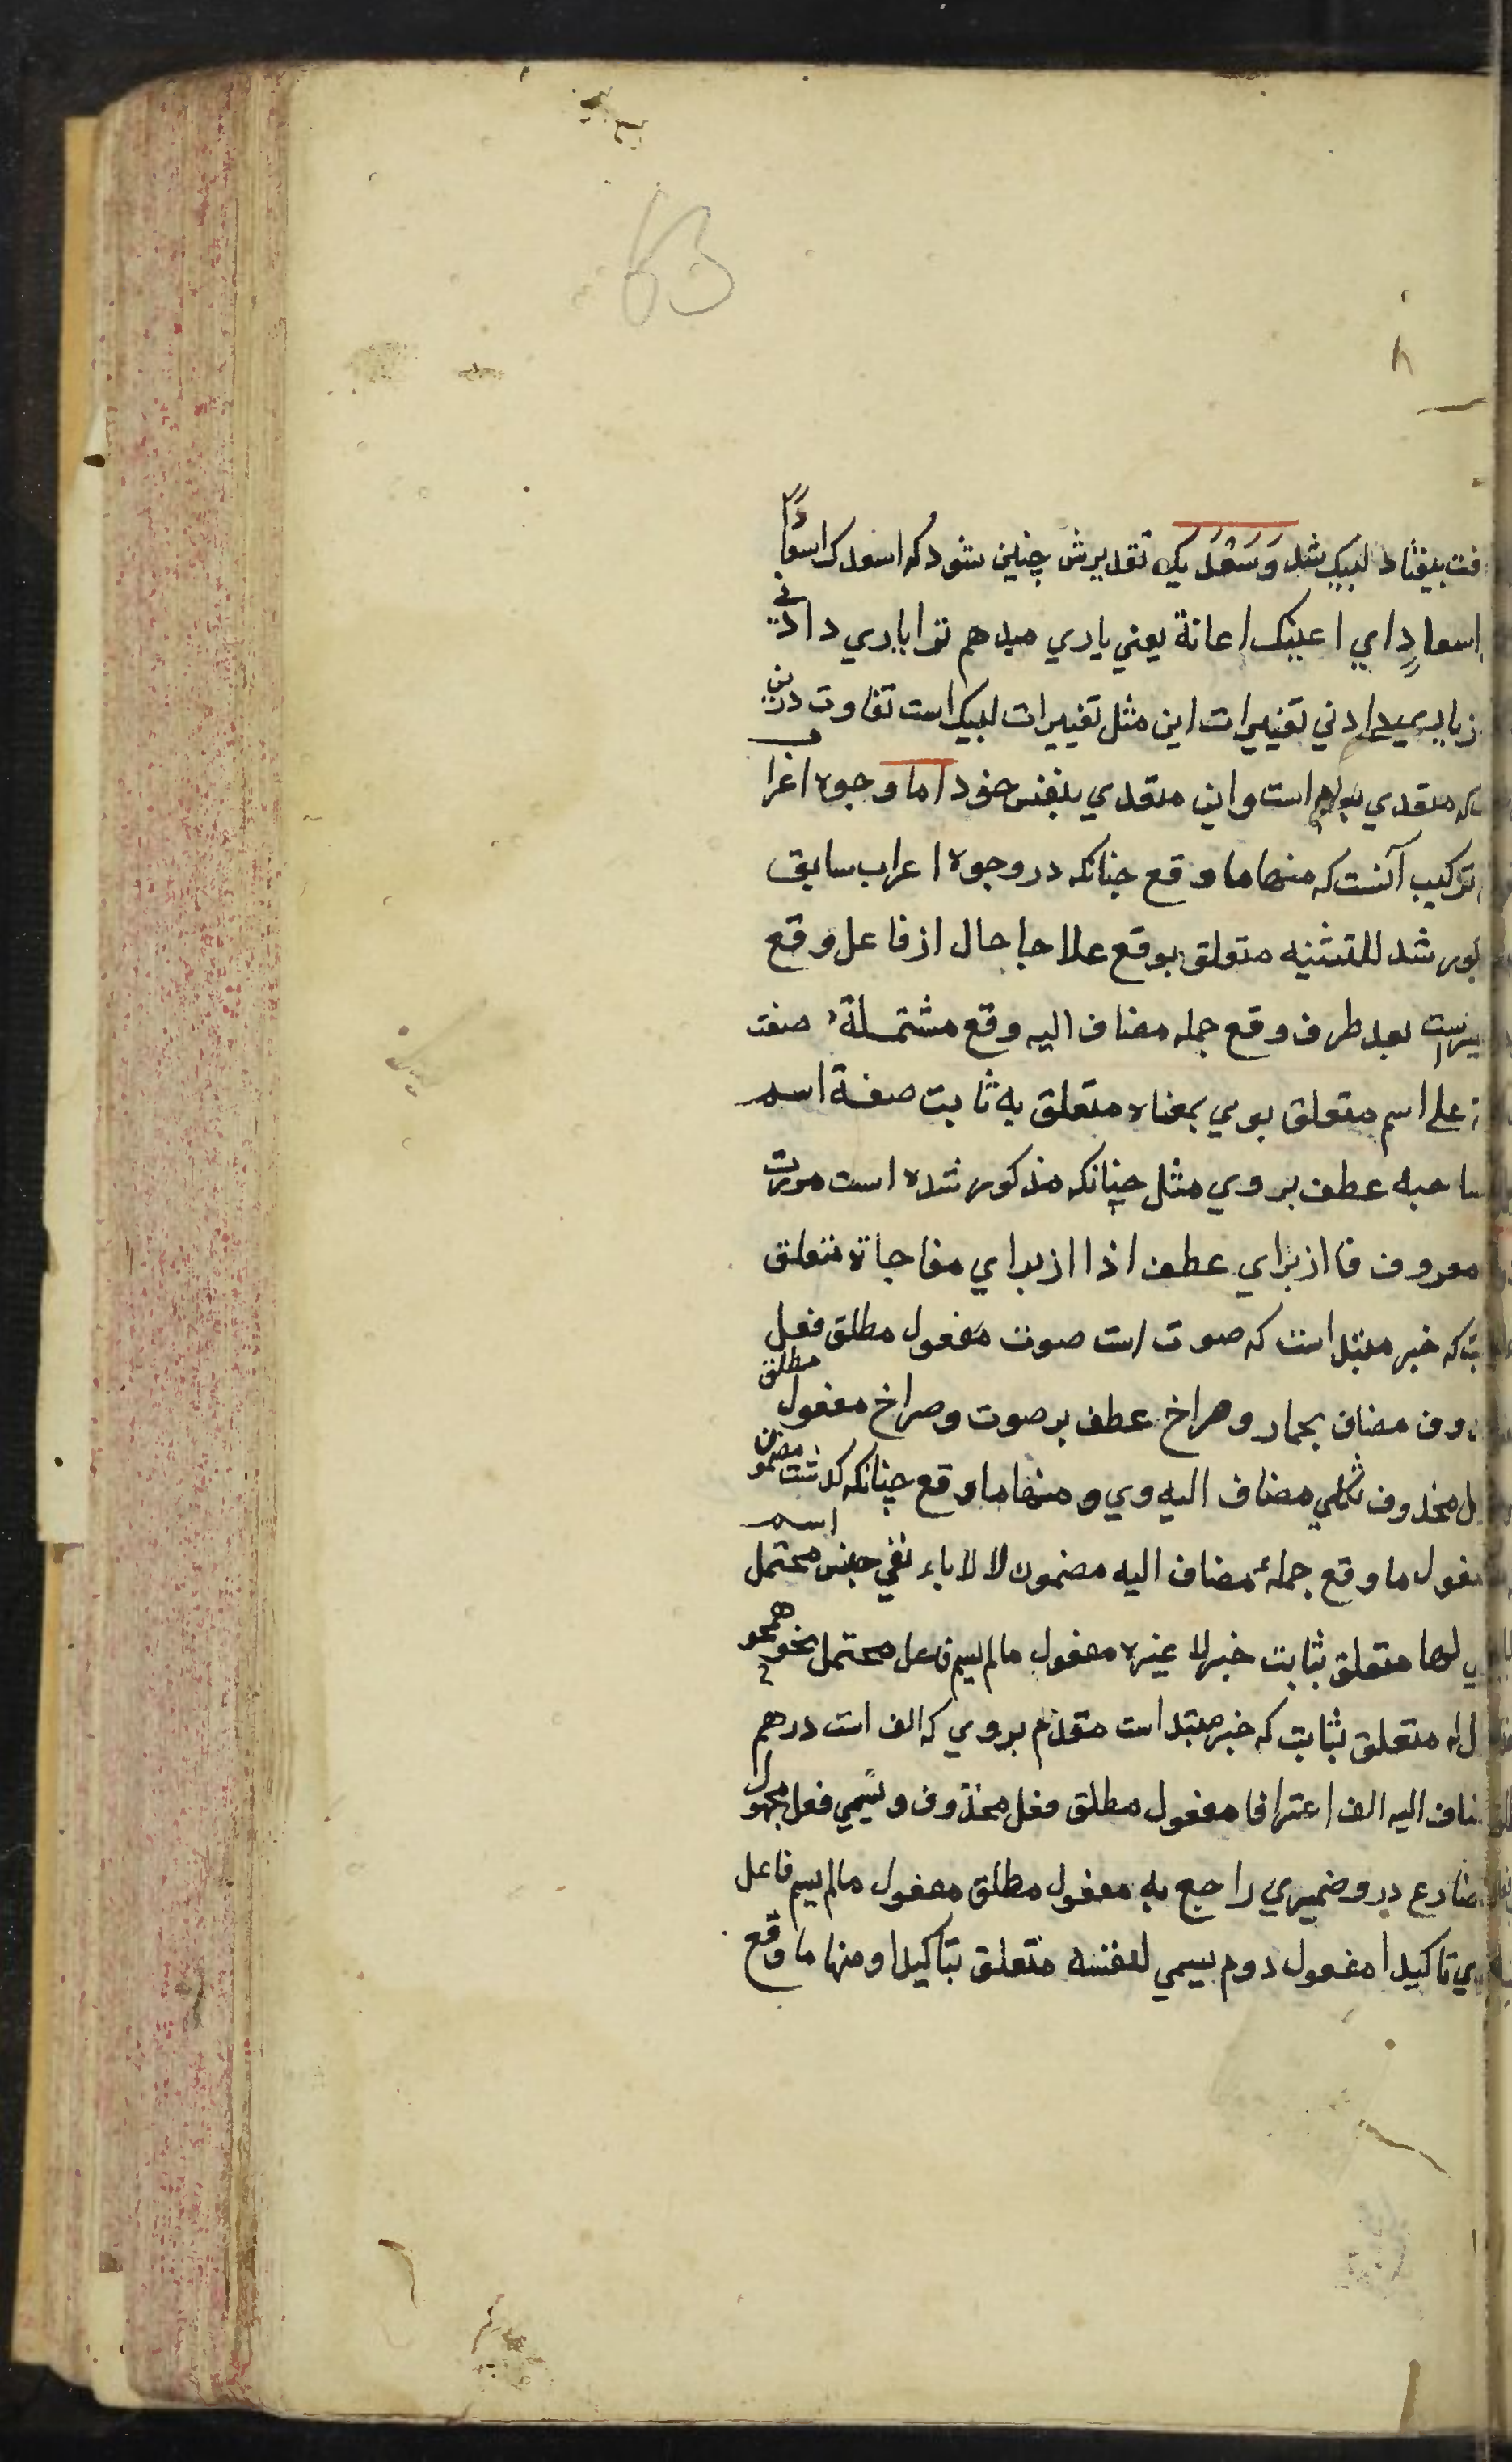 63
بیفتاد لبیک شد وَسَعْدَیک تقدیرش چنین شود که اسعدک اسعادًا
اسعادٍ ای اعینک اعانة یعنی یاری میدهم ترا یاری دادنی
تغییرات این مثل تغییرات لبیک است تفاوت درین
که متعدی بلام است و این متعدی بنفس خود اما وجوه اعرا
ترکیب آنست که منها ما وقع چنانکه در وجوه اعراب سابق
شد للتشبیه متعلق بوقع علاجا حال از فاعل وقع
بعد ظرف وقع جمله مضاف الیه وقع مشتملة صفت
علی اسم متعلق بوی بمعناه متعلق به ثابت صفة اسم
صاحبه عطف بروی مثل چنانکه مذکور شده است مررت
معروف فا از برای عطف اذا از برای مفاجاة متعلق
که خبر مبتداست که صوت است صوت مفعول مطلق فعل
مضاف بحمار و صراخ عطف بر صوت و صراخ مفعول مطلق
محذوف ثکلی مضاف الیه وی و منها ما وقع چنانکه گذشت مضمون
مفعول ما وقع جملهٔ مضاف الیه مضمون لا لاباء نفی جنس محتمل اسم
لها متعلق بثابت خبر لا غیره مفعول مالم یسم فاعل محتمل نحو همچو
له متعلق بثابت که خبر مبتداست مقدم بروی که الف است درهم
مضاف الیه الف اعترافا مفعول مطلق فعل محذوف و یسمی فعل مجهول
مضارع درو ضمیری راجع به مفعول مطلق مفعول مالم یسم فاعل
تاکیدا مفعول دوم یسمی لنفسه متعلق بتاکیدا و منها ما وقع